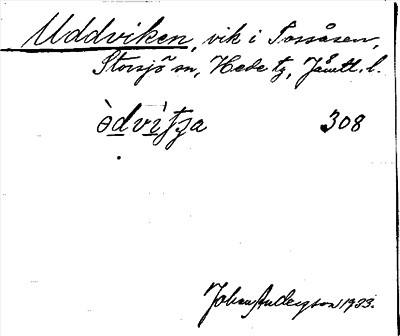 Uddviken, vik i Tossåsen,
Storsjö sn, Hede tg, Jämtl. l.
òdvìtja 308
Johan Anderson 1933.